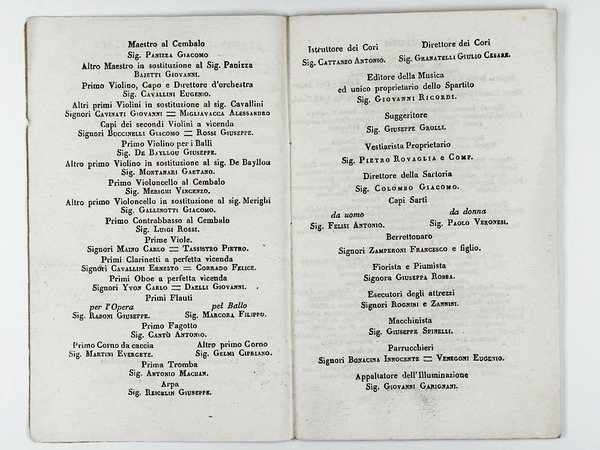 Maestro al Cembalo
Sig. Panizza Giacomo
Altro Maestro in sostituzione al Sig. Panizza
Bajetti Giovanni.
Primo Violino, Capo e Direttore d'orchestra
Sig. Cavallini Eugenio.
Altri primi Violini in sostituzione al sig. Cavallini
Signori Cavinati Giovanni = Migliavacca Alessandro
Capi dei secondi Violini a vicenda
Signori Buccinelli Giacomo = Rossi Giuseppe.
Primo Violino per i Balli
Sig. De Bayllou Giuseppe.
Altro primo Violino in sostituzione al sig. De Bayllou
Sig. Montanari Gaetano.
Primo Violoncello al Cembalo
Sig. Merighi Vincenzo.
Altro primo Violoncello in sostituzione al sig. Merighi
Sig. Gallinotti Giacomo.
Primo Contrabbasso al Cembalo
Sig. Luigi Rossi.
Prime Viole.
Signori Maino Carlo = Tassistro Pietro.
Primi Clarinetti a perfetta vicenda
Signori Cavallini Ernesto = Corrado Felice.
Primi Oboe a perfetta vicenda
Signori Yvon Carlo = Daelli Giovanni.
Primi Flauti
per l'Opera pel Ballo
Sig. Raboni Giuseppe. Sig. Marcora Filippo.
Primo Fagotto
Sig. Cantù Antonio.
Primo Corno da caccia Altro primo Corno
Sig. Martini Evergete. Sig. Gelmi Cipriano.
Prima Tromba
Sig. Antonio Machan.
Arpa
Sig. Reichlin Giuseppe.
Istruttore dei Cori Direttore dei Cori
Sig. Cattaneo Antonio. Sig. Granatelli Giulio Cesare.
Editore della Musica
ed unico proprietario dello Spartito
Sig. Giovanni Ricordi.
Suggeritore
Sig. Giuseppe Grolli.
Vestiarista Proprietario
Sig. Pietro Rovaglia e Comp.
Direttore della Sartoria
Sig. Colombo Giacomo.
Capi Sarti
da uomo da donna
Sig. Felisi Antonio. Sig. Paolo Veronesi.
Berrettonaro
Signori Zamperoni Francesco e figlio.
Fiorista e Piumista
Signora Giuseppa Robba.
Esecutori degli attrezzi
Signori Rognini e Zannini.
Macchinista
Sig. Giuseppe Spinelli.
Parrucchieri
Signori Bonacina Innocente = Venegoni Eugenio.
Appaltatore dell'Illuminazione
Sig. Giovanni Garignani.